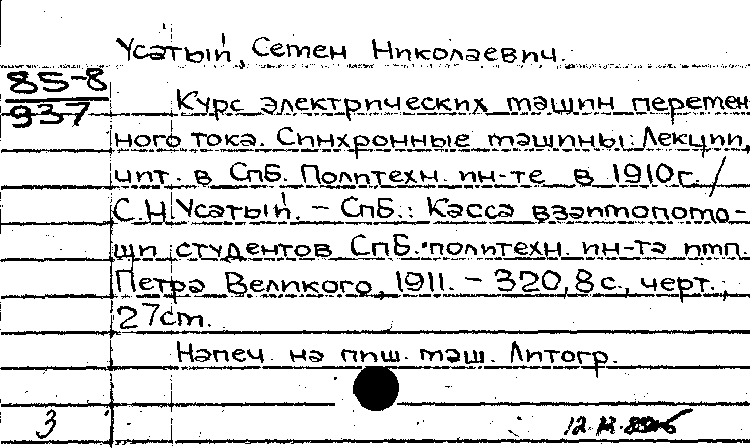 Усатый, Семен Николаевич.
85-8
937
Курс электрических машин перемен
ного тока. Синхронные машины: Лекции,
чит. в СпБ. Политехн. ин-те в 1910г. /
С.Н.Усатый. – СпБ.: Касса взаимопомо-
щи студентов СпБ. политехн. ин-та имп.
Петра Великого, 1911. – 320,8 с., черт.;
27см.
Напеч. на пиш. маш. Литогр.
3